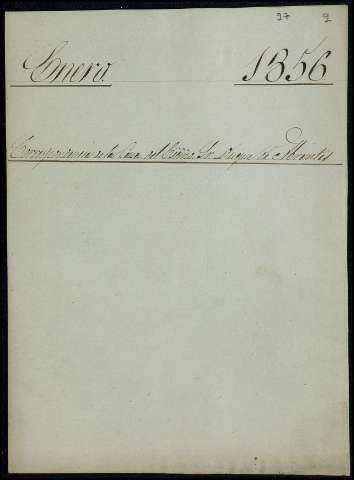 27 2
Enero. 1856
Correspondencia de la Casa del Exmo. Sr. Duque de Abrantes